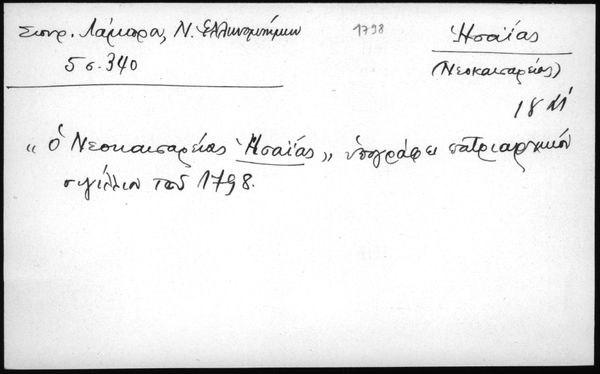 Σπυρ. Λάμπρου, Ν. Ἑλληνομνήμων
5 σ. 340
1798
Ἡσαΐας
(Νεοκαισαρείας)
18
"ὁ Νεοκαισαρείας Ἡσαΐας" ὑπογράφει πατριαρχικόν
σιγίλλιον τοῦ 1798.